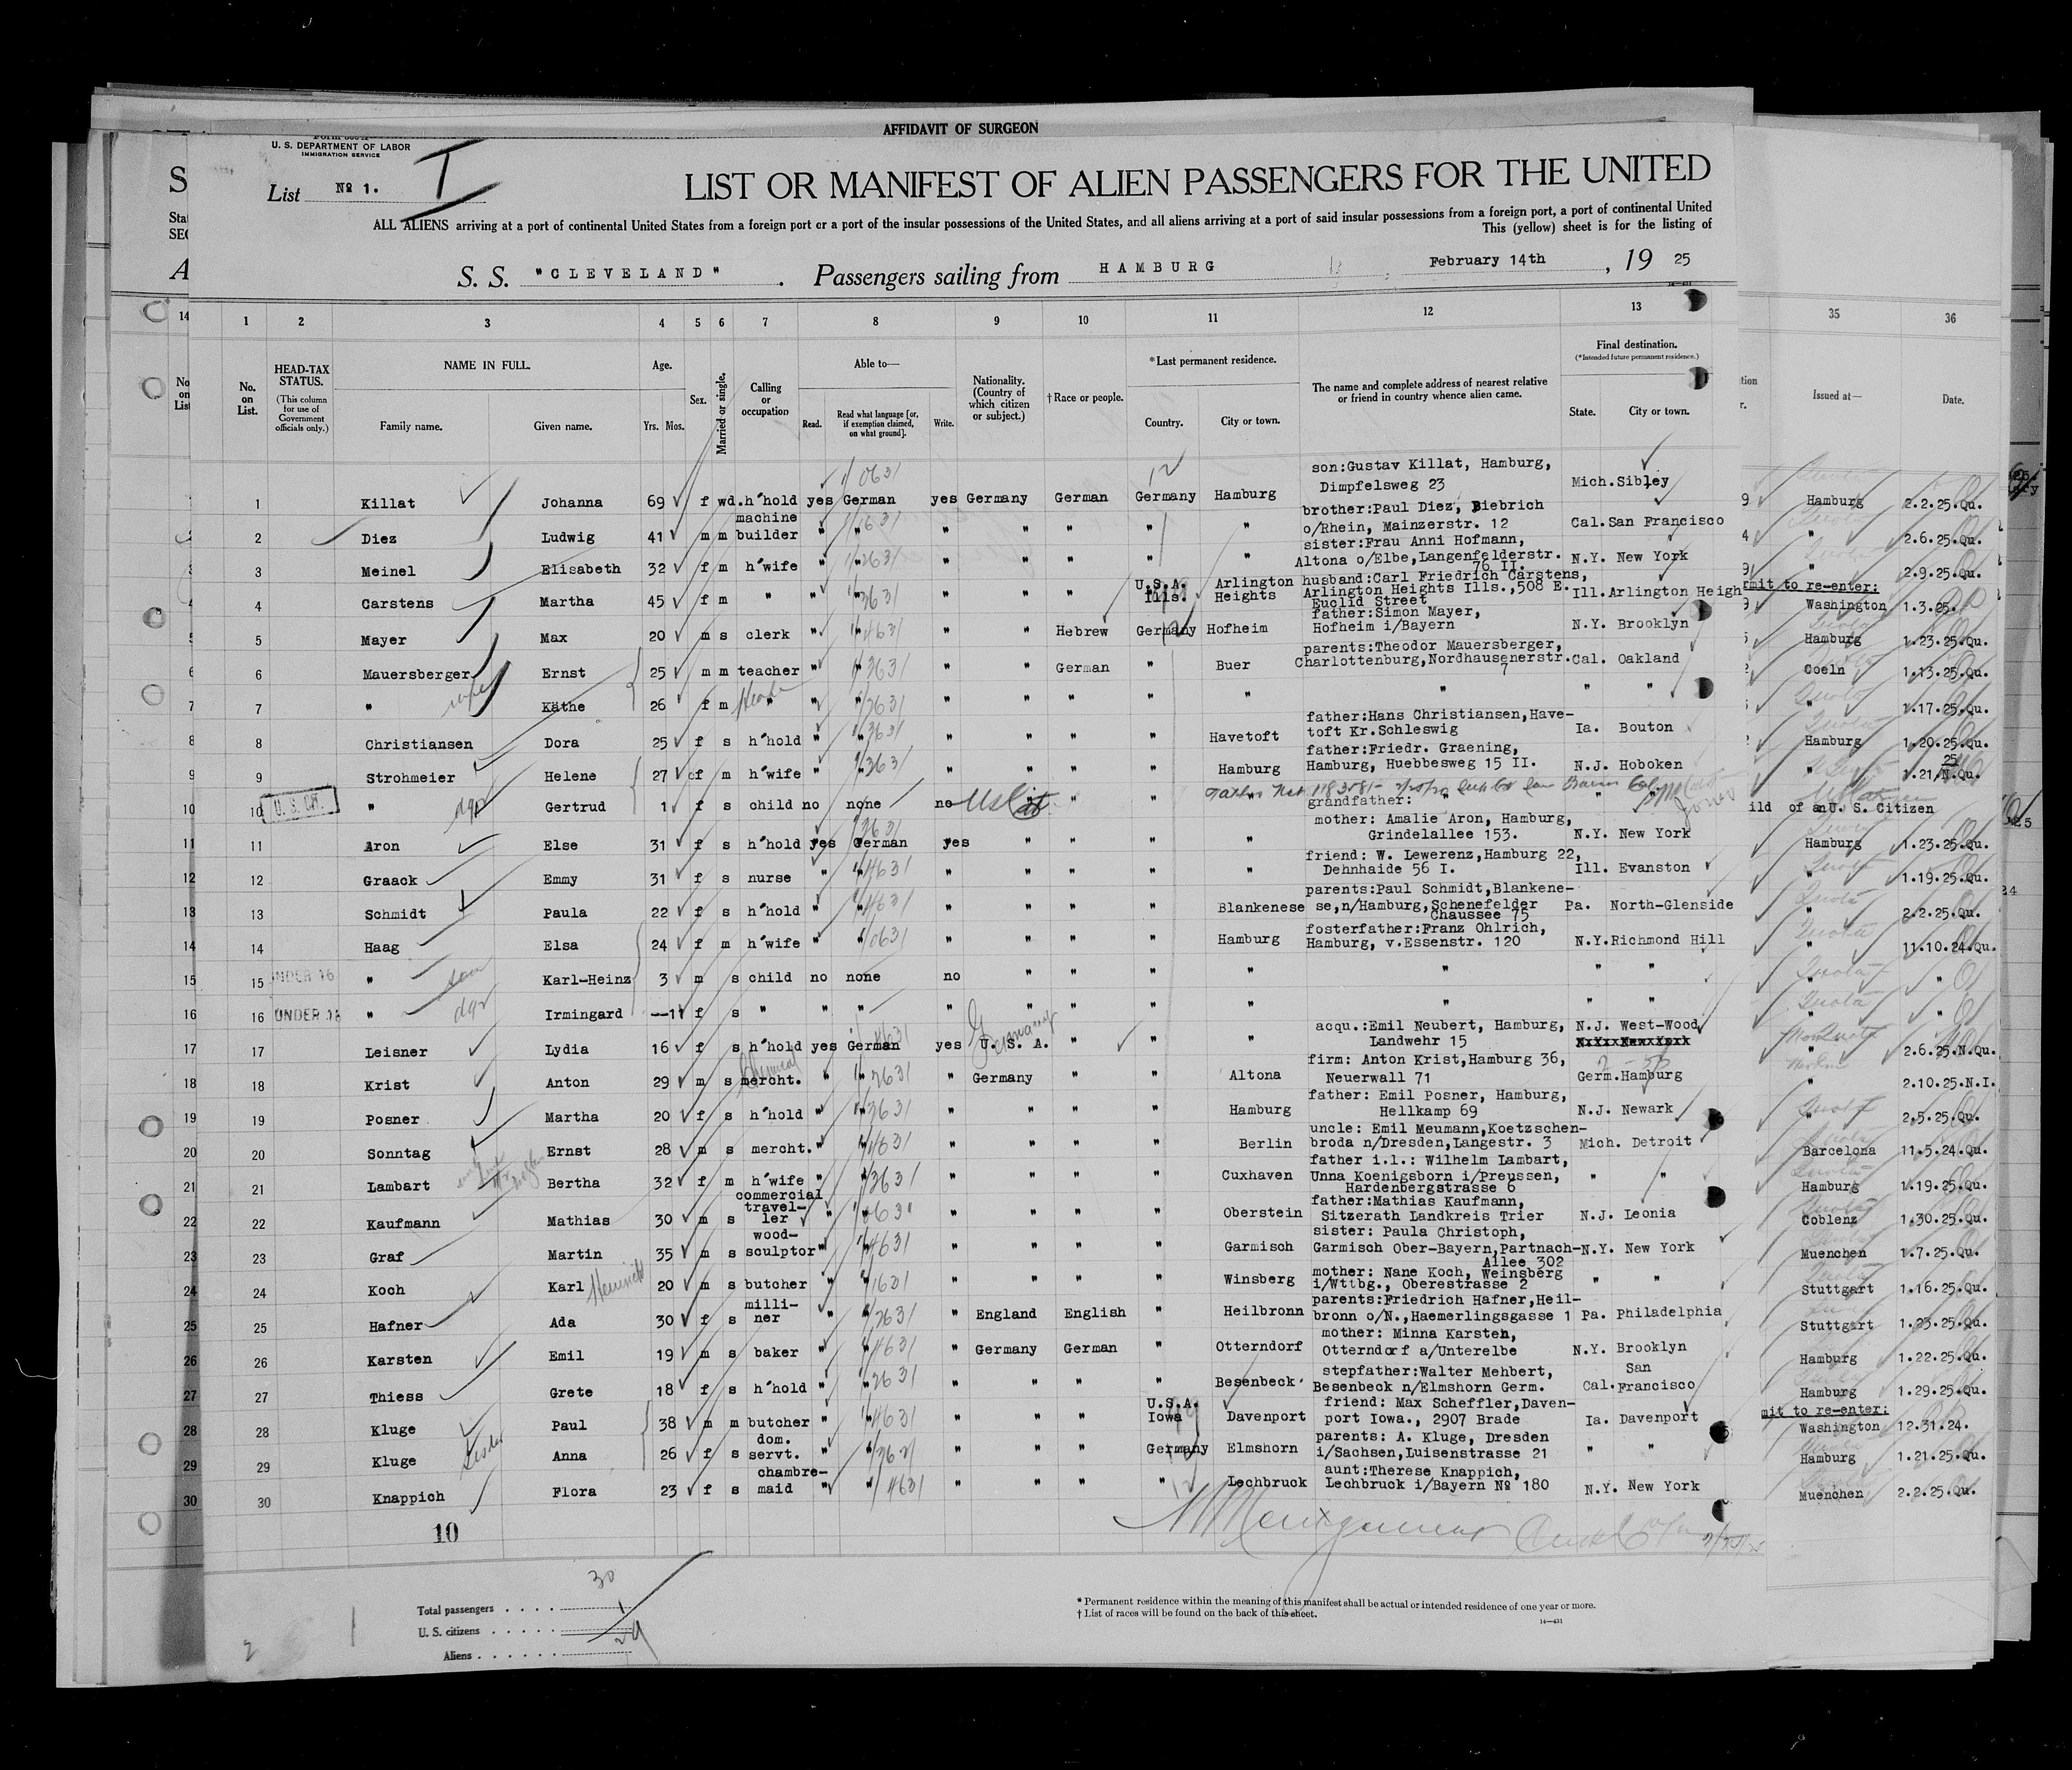 AFFIDAVIT OF SURGEON
U. S. DEPARTMENT OF LABOR
IMMIGRATION SERVICE
List № 1. I
LIST OR MANIFEST OF ALIEN PASSENGERS FOR THE UNITED
ALL ALIENS arriving at a port of continental United States from a foreign port or a port of the insular possessions of the United States, and all aliens arriving at a port of said insular possessions from a foreign port, a port of continental United
This (yellow) sheet is for the listing of
S. S. "CLEVELAND" . Passengers sailing from HAMBURG , February 14th , 19 25
1 2 3 4 5 6 7 8 9 10 11 12 13 35 36
No. on List. HEAD-TAX STATUS. (This column for use of Government officials only.) NAME IN FULL. Family name. Given name. Age. Yrs. Mos. Sex. Married or single. Calling or occupation Able to— Read. Read what language [or, if exemption claimed, on what ground]. Write. Nationality. (Country of which citizen or subject.) † Race or people. *Last permanent residence. Country. City or town. The name and complete address of nearest relative or friend in country whence alien came. Final destination. (*Intended future permanent residence.) State. City or town. Issued at— Date.
1 Killat Johanna 69 f wd. h'hold yes German yes Germany German Germany Hamburg son:Gustav Killat, Hamburg, Dimpfelsweg 23 Mich. Sibley Hamburg 2.2.25.Qu.
2 Diez Ludwig 41 m m machine builder " " " " " " " brother:Paul Diez, Biebrich o/Rhein, Mainzerstr. 12 Cal. San Francisco " 2.6.25.Qu.
3 Meinel Elisabeth 32 f m h'wife " " " " " " " sister:Frau Anni Hofmann, Altona o/Elbe,Langenfelderstr. 76 II. N.Y. New York " 2.9.25.Qu.
4 Carstens Martha 45 f m " " " " " " U.S.A. Ills. Arlington Heights husband:Carl Friedrich Carstens, Arlington Heights Ills.,508 E. Euclid Street Ill. Arlington Heigh mit to re-enter: Washington 1.3.25.
5 Mayer Max 20 m s clerk " " " " Hebrew Germany Hofheim father:Simon Mayer, Hofheim i/Bayern N.Y. Brooklyn Hamburg 1.23.25.Qu.
6 Mauersberger Ernst 25 m m teacher " " " " German " Buer parents:Theodor Mauersberger, Charlottenburg,Nordhausenerstr. 7 Cal. Oakland Coeln 1.13.25.Qu.
7 " wife Käthe 26 f m " " " " " " " " " " " " 1.17.25.Qu.
8 Christiansen Dora 25 f s h'hold " " " " " " Havetoft father:Hans Christiansen,Havetoft Kr.Schleswig Ia. Bouton Hamburg 1.20.25.Qu.
9 Strohmeier Helene 27 f m h'wife " " " " " " Hamburg father:Friedr. Graening, Hamburg, Huebbesweg 15 II. N.J. Hoboken " 1.21/25 N.Qu.
10 U. S. CIT. " dgr Gertrud 1 f s child no none no US Cit " " " grandfather: " " " ild of an U. S. Citizen
11 Aron Else 31 f s h'hold yes German yes " " " " mother: Amalie Aron, Hamburg, Grindelallee 153. N.Y. New York Hamburg 1.23.25.Qu.
12 Graack Emmy 31 f s nurse " " " " " " " friend: W. Lewerenz,Hamburg 22, Dehnhaide 56 I. Ill. Evanston " 1.19.25.Qu.
13 Schmidt Paula 22 f s h'hold " " " " " " Blankenese parents:Paul Schmidt,Blankenese,n/Hamburg,Schenefelder Chaussee 75 Pa. North-Glenside " 2.2.25.Qu.
14 Haag Elsa 24 f m h'wife " " " " " " Hamburg fosterfather:Franz Ohlrich, Hamburg, v.Essenstr. 120 N.Y. Richmond Hill " 11.10.24.Qu.
15 UNDER 16 " son Karl-Heinz 3 m s child no none no " " " " " " " " "
16 UNDER 16 " dgr Irmingard --11 f s " " " " " " " " " " " " "
17 Leisner Lydia 16 f s h'hold yes German yes U. S. A. Germany " " " acqu.:Emil Neubert, Hamburg, Landwehr 15 N.J. West-Wood " 2.6.25.N.Qu.
18 Krist Anton 29 m s Chemical mercht. " " " Germany " " Altona firm: Anton Krist,Hamburg 36, Neuerwall 71 Germ. Hamburg " 2.10.25.N.I.
19 Posner Martha 20 f s h'hold " " " " " " Hamburg father: Emil Posner, Hamburg, Hellkamp 69 N.J. Newark " 2.5.25.Qu.
20 Sonntag Ernst 28 m s mercht. " " " " " " Berlin uncle: Emil Meumann,Koetzschenbroda n/Dresden,Langestr. 3 Mich. Detroit Barcelona 11.5.24.Qu.
21 Lambart Bertha 32 f m h'wife " " " " " " Cuxhaven father i.l.: Wilhelm Lambart, Unna Koenigsborn i/Preussen, Hardenbergstrasse 6 " " Hamburg 1.19.25.Qu.
22 Kaufmann Mathias 30 m s commercial traveller " " " " " " Oberstein father:Mathias Kaufmann, Sitzerath Landkreis Trier N.J. Leonia Coblenz 1.30.25.Qu.
23 Graf Martin 35 m s wood-sculptor " " " " " " Garmisch sister: Paula Christoph, Garmisch Ober-Bayern,Partnach-Allee 302 N.Y. New York Muenchen 1.7.25.Qu.
24 Koch Karl Heinrich 20 m s butcher " " " " " " Winsberg mother: Nane Koch, Weinsberg i/Wttbg., Oberestrasse 2 " " Stuttgart 1.16.25.Qu.
25 Hafner Ada 30 f s milliner " " " England English " Heilbronn parents:Friedrich Hafner,Heilbronn o/N.,Haemerlingsgasse 1 Pa. Philadelphia Stuttgart 1.23.25.Qu.
26 Karsten Emil 19 m s baker " " " Germany German " Otterndorf mother: Minna Karsten, Otterndorf a/Unterelbe N.Y. Brooklyn Hamburg 1.22.25.Qu.
27 Thiess Grete 18 f s h'hold " " " " " " Besenbeck stepfather:Walter Mehbert, Besenbeck n/Elmshorn Germ. Cal. San Francisco Hamburg 1.29.25.Qu.
28 Kluge Paul 38 m m butcher " " " " " U.S.A. Iowa Davenport friend: Max Scheffler,Davenport Iowa., 2907 Brade Ia. Davenport mit to re-enter: Washington 12.31.24.
29 Kluge Sister Anna 26 f s dom. servt. " " " " " Germany Elmshorn parents: A. Kluge, Dresden i/Sachsen,Luisenstrasse 21 " " Hamburg 1.21.25.Qu.
30 Knappich Flora 23 f s chambremaid " " " " " " Lechbruck aunt:Therese Knappich, Lechbruck i/Bayern № 180 N.Y. New York Muenchen 2.2.25.Qu.
10
Total passengers . . . . . 30
U. S. citizens . . . . . . 1
Aliens . . . . . . . 29
* Permanent residence within the meaning of this manifest shall be actual or intended residence of one year or more.
† List of races will be found on the back of this sheet.
14—431